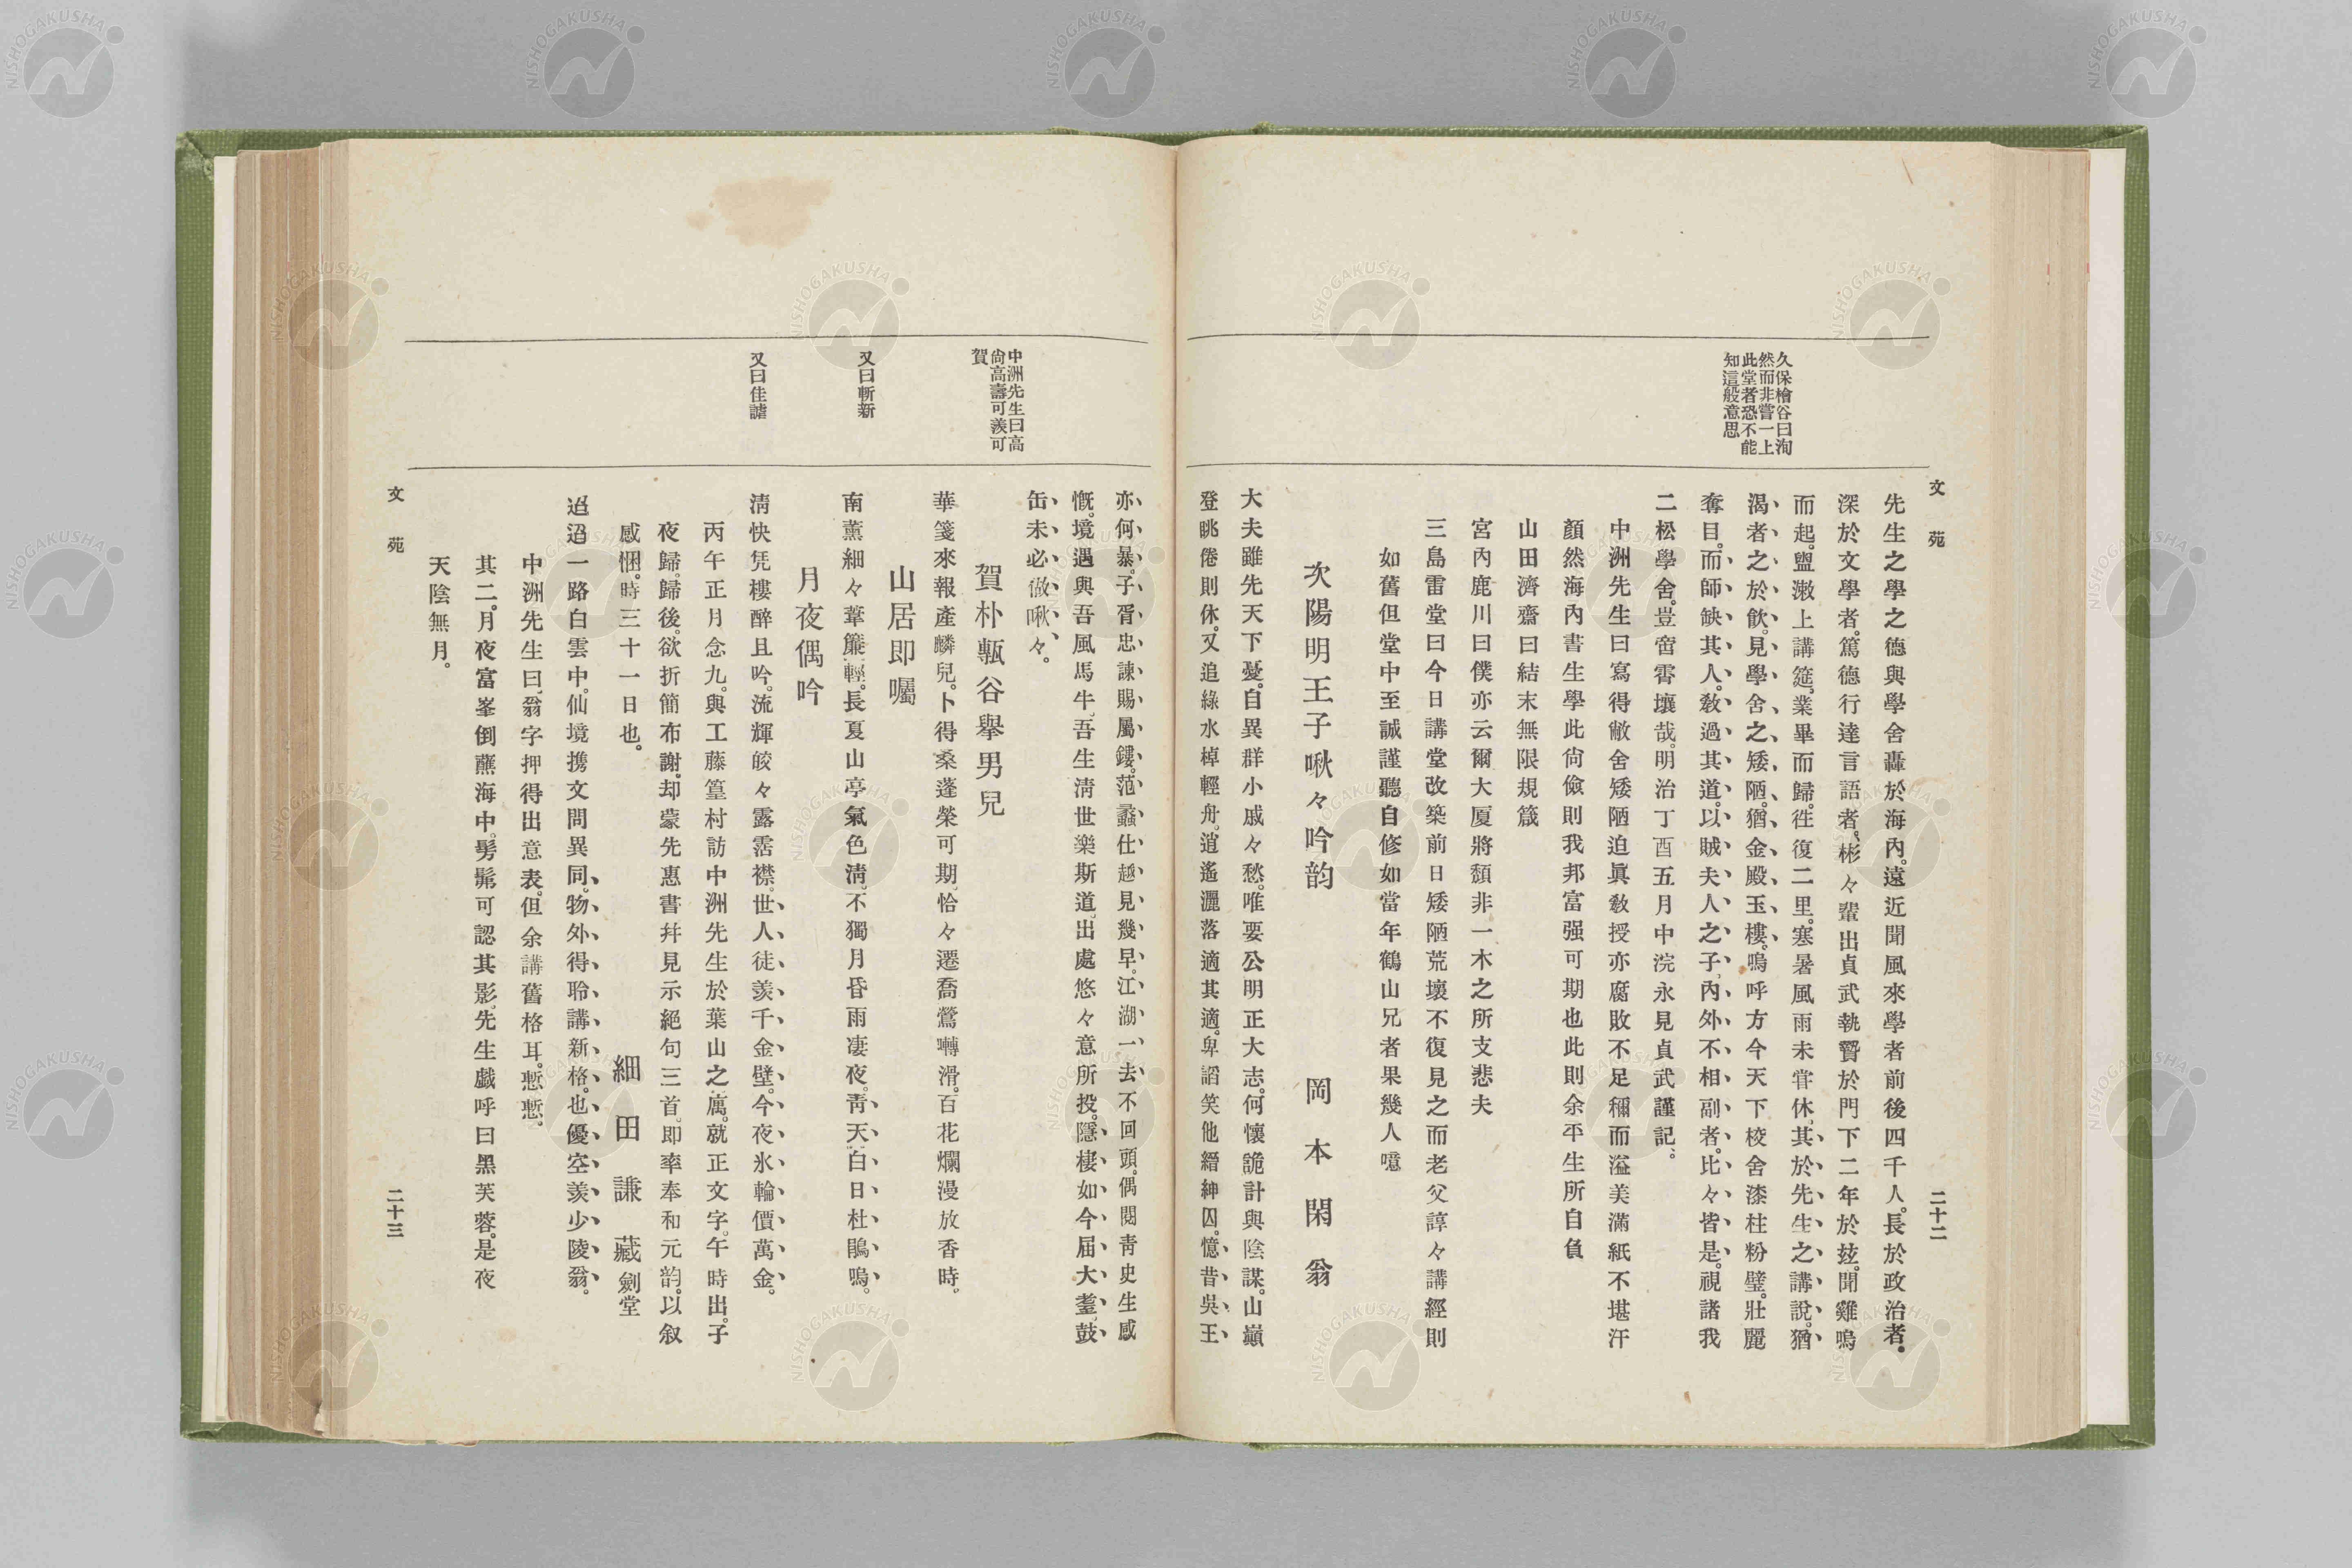 文苑
二十二
久保檜谷曰洵
然而非嘗一上
此堂者恐不能
知這般意思
先生之學之德與學舍轟於海內。遠近聞風來學者前後四千人。長於政治者。
深於文學者。篤德行達言語者。彬々輩出貞武執贄於門下二年於玆。聞雞鳴
而起。盥漱上講筵。業畢而歸。徃復二里。寒暑風雨未甞休。其於先生之講說。猶
渴者之於飮。見學舍之矮陋。猶金殿玉樓。嗚呼方今天下校舍漆柱粉壁。壯麗
奪目。而師缺其人。敎過其道。以賊夫人之子、內外不相副者。比々皆是。視諸我
二松學舍。豈啻霄壤哉。明治丁酉五月中浣永見貞武謹記。
中洲先生曰寫得敝舍矮陋迫眞敎授亦腐敗不足稱而溢美滿紙不堪汗
顏然海內書生學此尙儉則我邦富强可期也此則余平生所自負
山田濟齋曰結末無限規箴
宮內鹿川曰僕亦云爾大厦將頽非一木之所支悲夫
三島雷堂曰今日講堂改築前日矮陋荒壞不復見之而老父諄々講經則
如舊但堂中至誠謹聽自修如當年鶴山兄者果幾人噫
次陽明王子啾々吟韵
岡本閑翁
大夫雖先天下憂。自異群小戚々愁。唯要公明正大志。何懷詭計與陰謀。山巓
登眺倦則休。又追綠水棹輕舟。逍遙灑落適其適。卑謟笑他縉紳囚。憶昔吳王
亦何暴。子胥忠諫賜屬鏤。范蠡仕越見幾早。江湖一去不回頭。偶閱靑史生感
慨。境遇與吾風馬牛。吾生淸世樂斯道。出處悠々意所投。隱棲如今届大耋。鼓
缶未必傚啾々。
中洲先生曰高
尙高壽可羨可
賀
賀朴甎谷擧男兒
華箋來報產麟兒。卜得桑蓬榮可期。恰々遷喬鶯囀滑。百花爛漫放香時。
山居即囑
又曰斬新
南薰細々葦簾輕。長夏山亭氣色淸。不獨月昏雨凄夜。靑天白日杜鵑鳴。
月夜偶吟
又曰佳謔
淸快凭樓醉且吟。流輝皎々露霑襟。世人徒羨千金壁。今夜氷輪價萬金。
丙午正月念九。與工藤篁村訪中洲先生於葉山之廡。就正文字。午時出。子
夜歸。歸後。欲折簡布謝。却蒙先惠書幷見示絕句三首。即率奉和元韵。以叙
感悃。時三十一日也。
細田謙藏劍堂
迢迢一路白雲中。仙境携文問異同。物外得聆講新格。也優空羨少陵翁。
中洲先生曰、翁字押得出意表。但余講舊格耳。慙慙。
其二。月夜富峯倒蘸海中。髣髴可認其影。先生戯呼曰黑芙蓉。是夜
天陰無月。
文苑
二十三